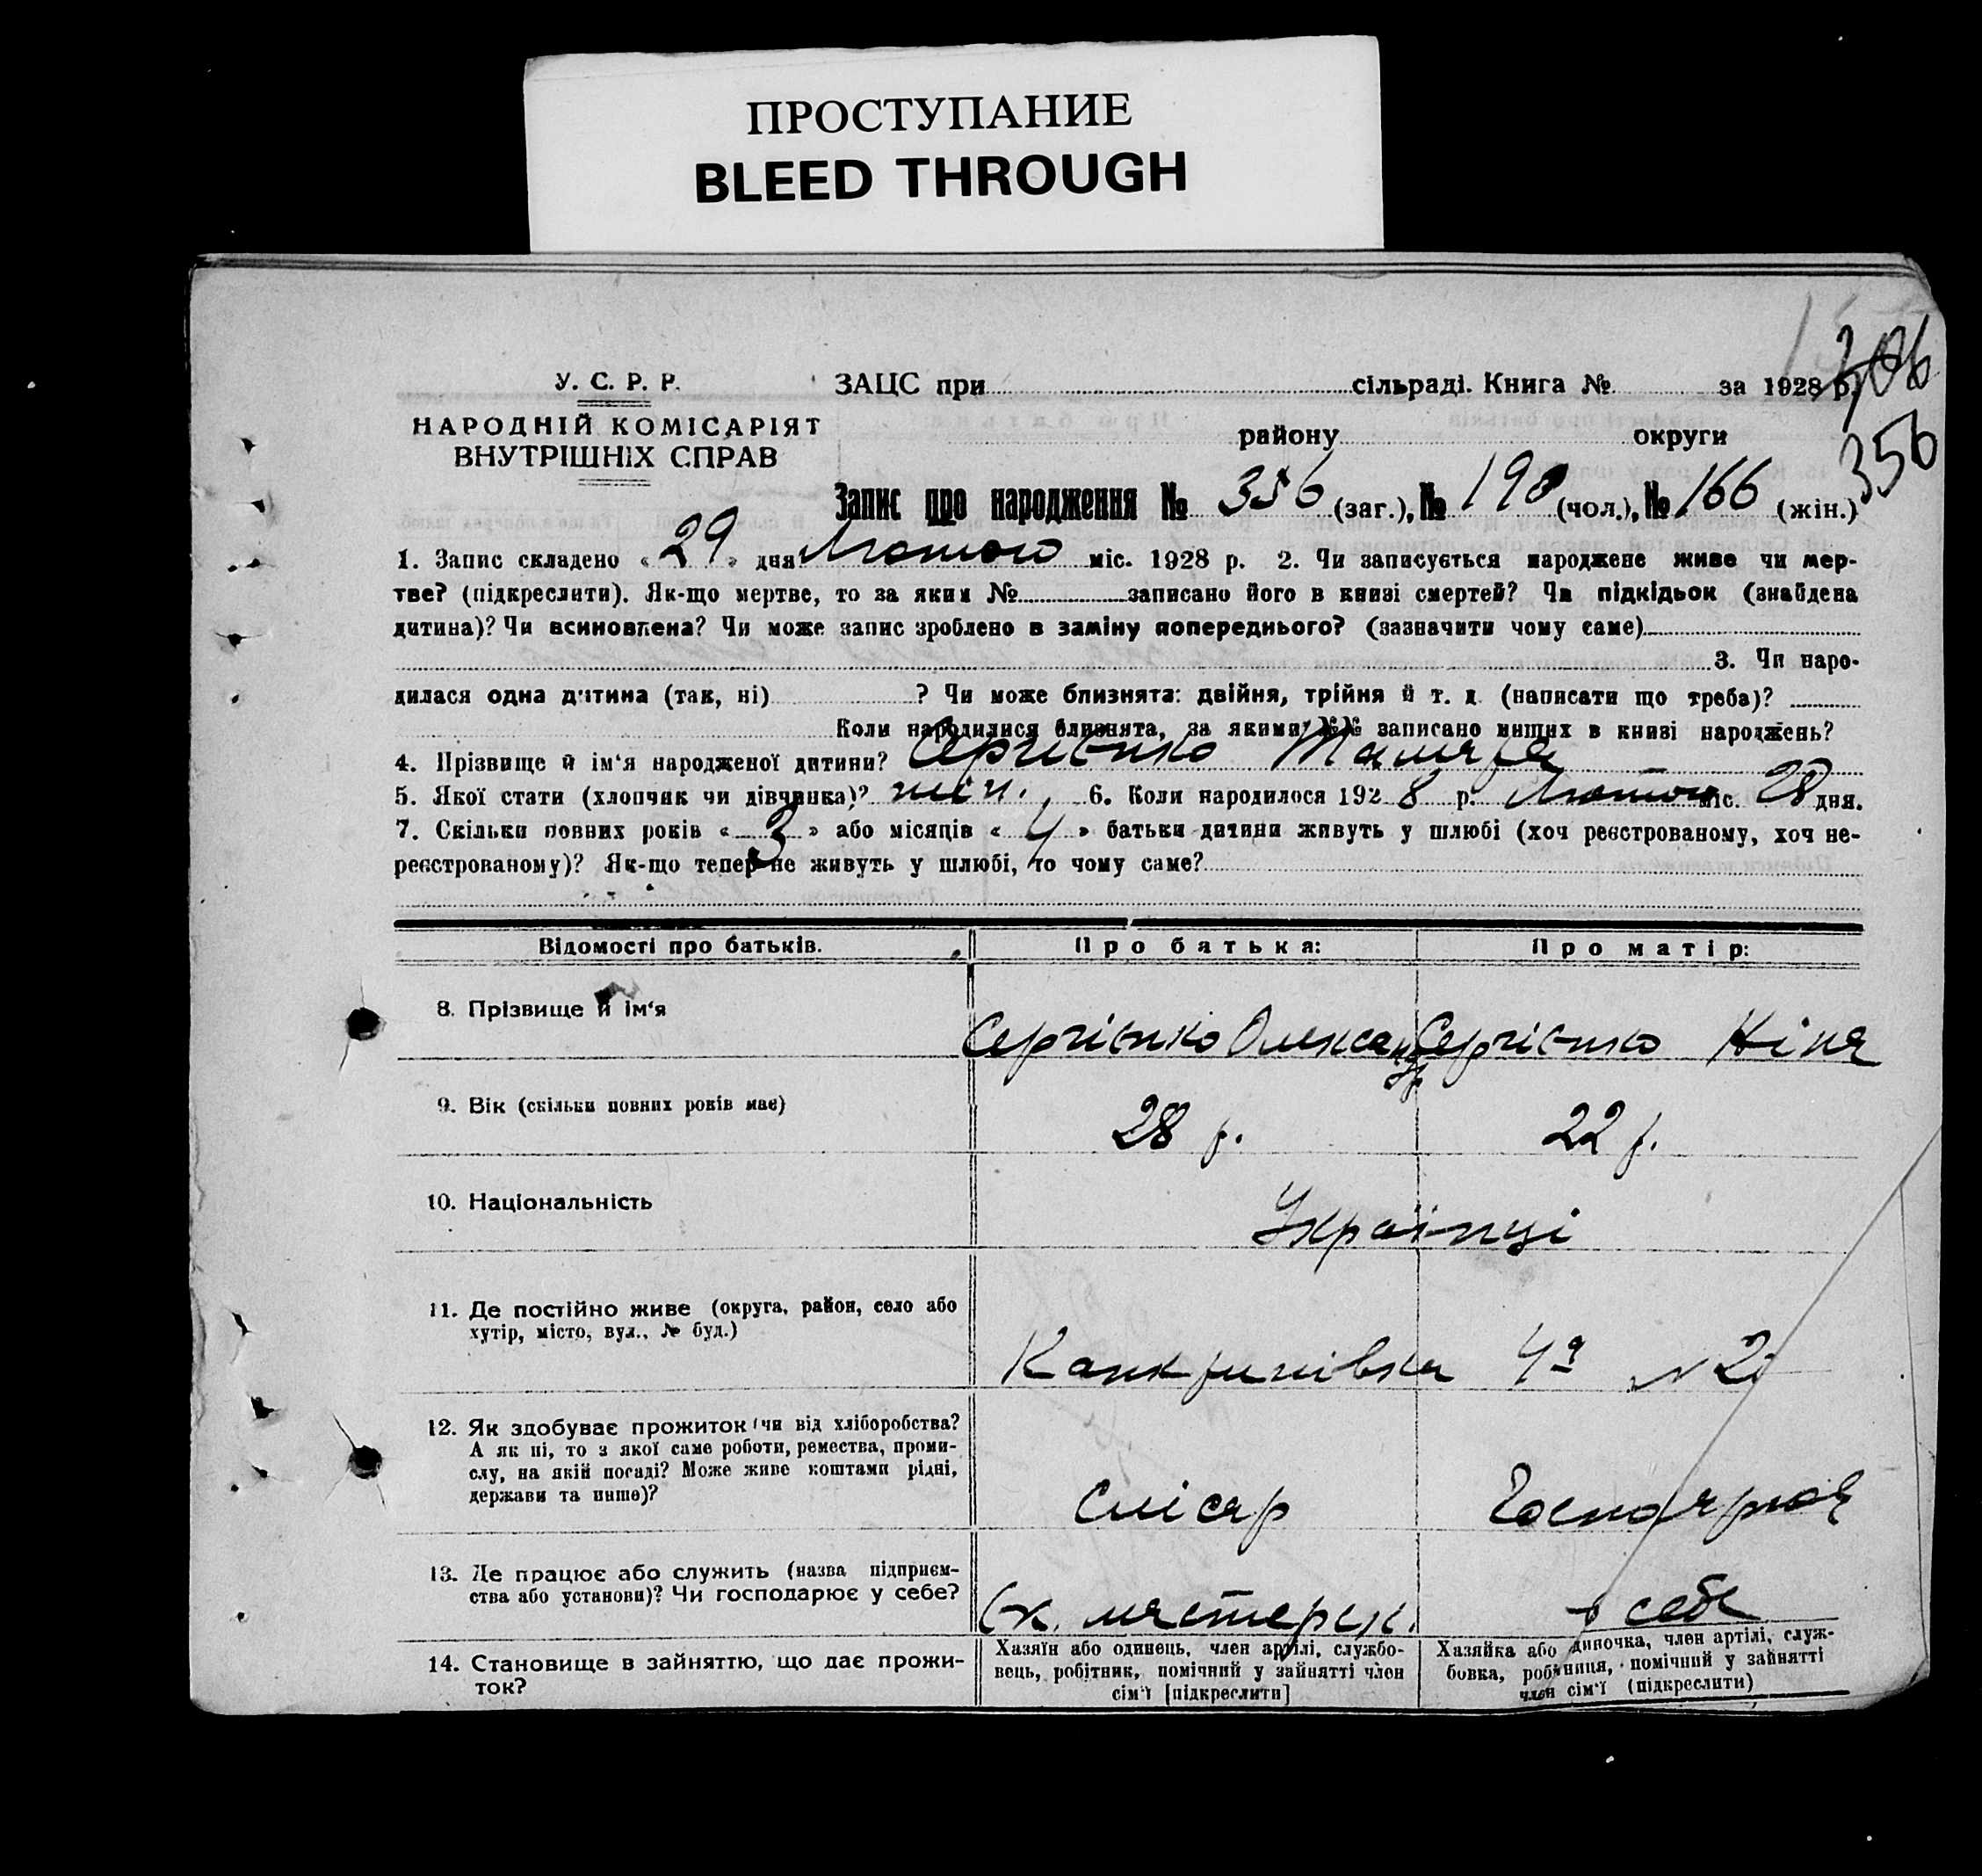 ПРОСТУПАНИЕ
BLEED THROUGH
306
У. С. Р. Р. ЗАЦС при сільраді. Книга № за 1928 р.
НАРОДНІЙ КОМІСАРІЯТ
ВНУТРІШНІХ СПРАВ
району округи
356
Запис про народження № 356 (заг.), № 190 (чол.), № 166 (жін.)
1. Запис складено « 29 » дня Лютого міс. 1928 р. 2. Чи записується народжене живе чи мер-
тве? (підкреслити). Як-що мертве, то за яким № записано його в книзі смертей? Чи підкідьок (знайдена
дитина)? Чи всиновлена? Чи може запис зроблено в заміну попереднього? (зазначити чому саме)
3. Чи наро-
дилася одна дитина (так, ні) ? Чи може близнята: двійня, трійня й т. д. (написати що треба)?
Коли народилися близнята, за якими №№ записано инших в книзі народжень?
4. Прізвище й ім'я народженої дитини? Сергієнко Тамара
5. Якої стати (хлопчик чи дівчинка)? жін. 6. Коли народилося 1928 р. Лютого міс. 28 дня.
7. Скільки повних років « 3 » або місяців « 4 » батьки дитини живуть у шлюбі (хоч реєстрованому, хоч не-
реєстрованому)? Як-що тепер не живуть у шлюбі, то чому саме?
Відомості про батьків. Про батька: Про матір:
8. Прізвище й ім'я Сергієнко Олександр Сергієнко Ніна
9. Вік (скільки повних років має) 28 р. 22 р.
10. Національність Українці
11. Де постійно живе (округа, район, село або
хутір, місто, вул., № буд.)
Канкринівка 4а № 2
12. Як здобуває прожиток (чи від хліборобства?
А як ні, то з якої саме роботи, ремества, проми-
слу, на якій посаді? Може живе коштами рідні,
держави та инше)?
Слісар Господарює
13. Де працює або служить (назва підприєм-
ства або установи)? Чи господарює у себе?
мастерск. у себе
14. Становище в зайняттю, що дає прожи-
ток?
Хазяїн або одинець, член артілі, службо-
вець, робітник, помічний у зайнятті член
сім'ї [підкреслити]
Хазяйка або диночка, член артілі, служ-
бовка, робітниця, помічний у зайнятті
член сім'ї (підкреслити)